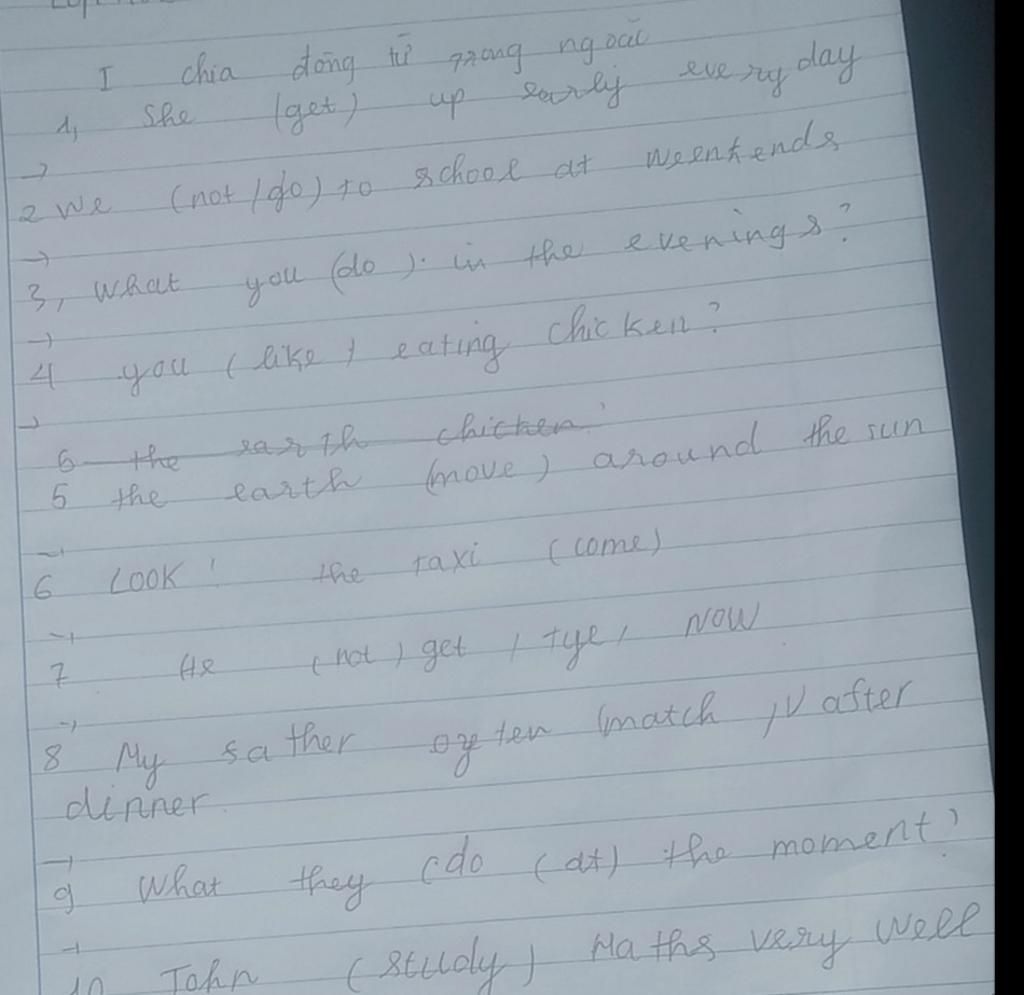 I chia động từ trong ngoặc
1, She (get) up early every day
→
2 We (not / go) to school at weenkends
→
3, What you (do). in the evenings?
→
4 you (like) eating chicken?
→
6 the earth chicken?
5 the earth (move) around the sun
→
6 LOOK! the taxi (come)
→
7 He (not) get / tye, NOW
→
8 My father often (match TV after
dinner.
→
9 What they (do (at) the moment?
→
10 John (study) Maths very well